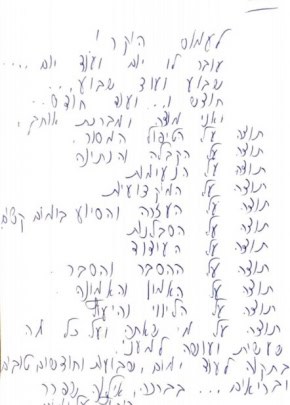 לעמוס היקר !
עובר לו יום ועוד יום ....
שבוע ועוד שבוע...
חודש ו... ועוד חודש...
ואני מוצה ומברכת אותך,
תודה על הטיפול המסור
תודה על הקבלה והנתינה
תודה על הנעימות
תודה על המקצועיות
תודה על העזרה והסיוע בימים קשים
תודה על הסבלנות
תודה על העידוד
תודה על ההסבר והסבר
תודה על האמון והאמונה
תודה על הליווי והיעוץ
תודה על מי שאתה ועל כל מה
שעשית ועושה למעני.
בתקוה לעוד ימים, שבועות וחודשים טובים
ובריאים... בברכה, אילנה